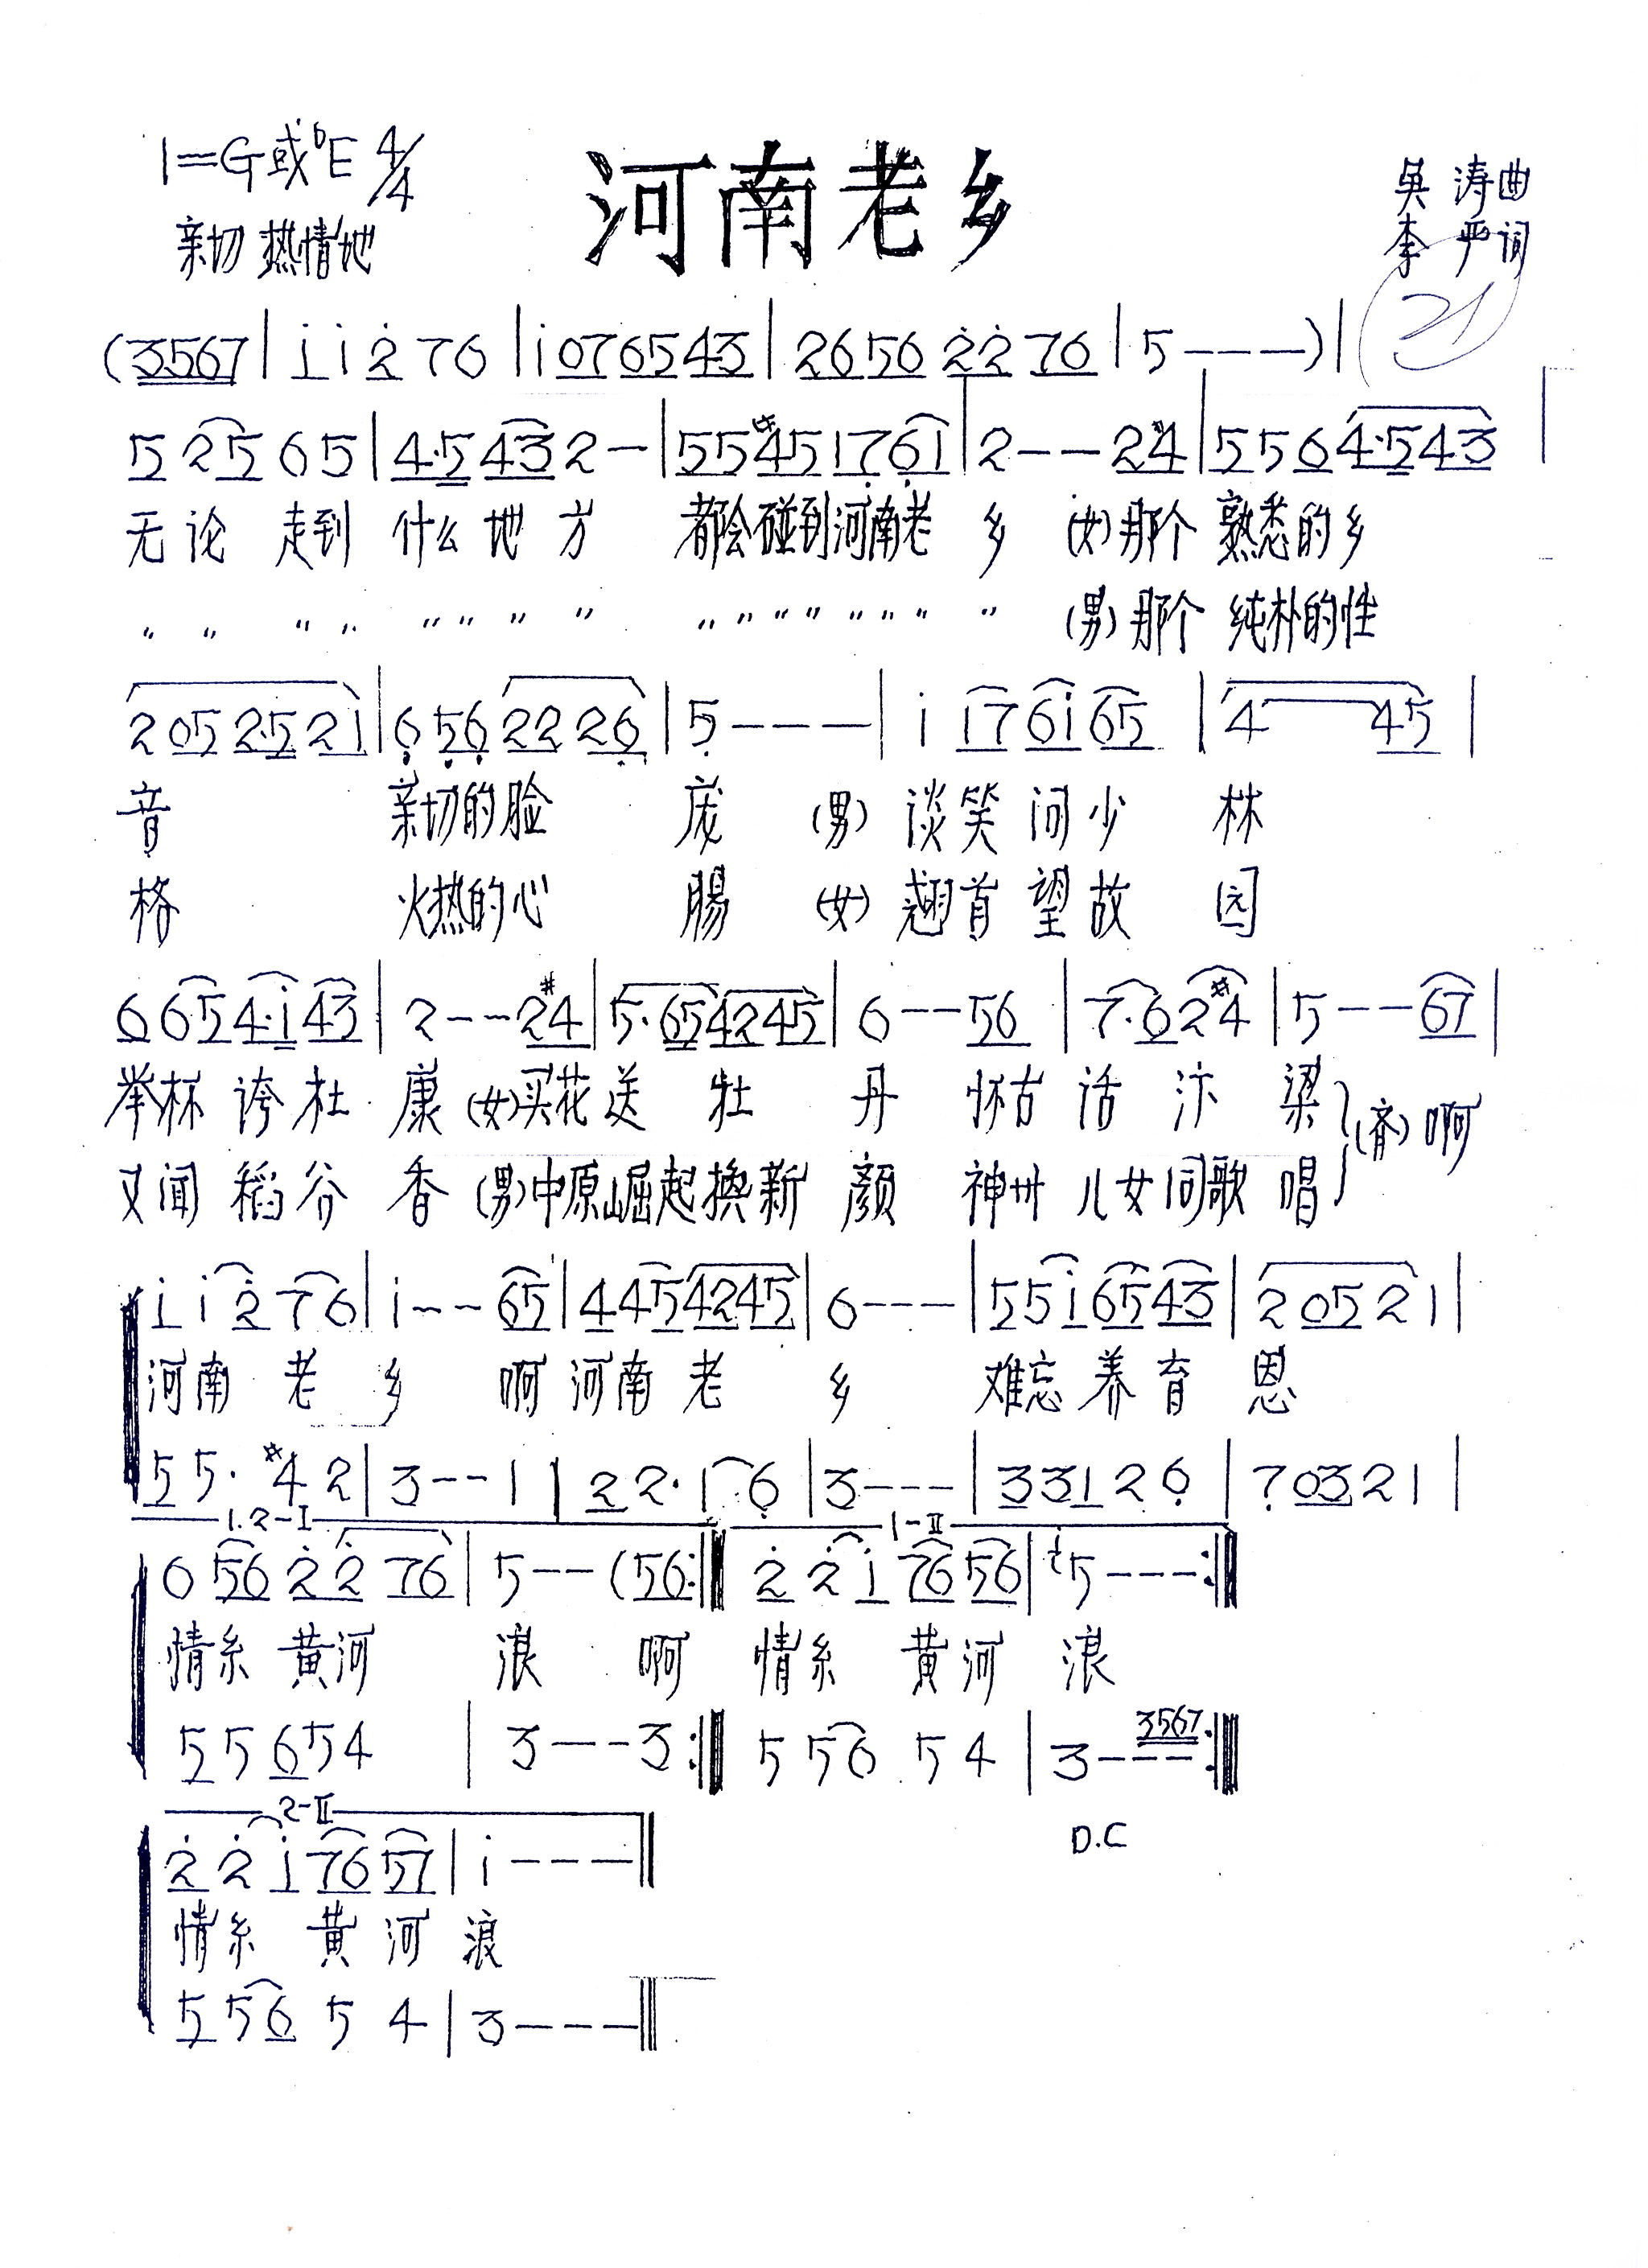 1=G或♭E 4/4
河南老乡
吴 涛曲
亲切 热情地
李 严词
21
(3567 | i i 2̇ 7 6 | i 07 65 43 | 26 56 2̇2̇ 76 | 5 - - - ) |
5 2 5 6 5 | 4·5 43 2 - | 55 #45 17̣ 6̣1 | 2 - - 2#4 | 5 5 6 4·5 43 |
无论 走到 什么 地 方 都会碰到河南老 乡 (女)那个 熟悉的乡
〃 〃 〃 〃 〃 〃 〃 〃 〃 〃 〃 〃 〃 〃 〃 〃 (男)那个 纯朴的性
2 05 2·5 21 | 6̣ 5̣6̣ 22 26̣ | 5̣ - - - | i i7 6i 65 | 4 45 |
音 亲切的脸 庞 (男) 谈笑 问少 林
格 火热的心 腸 (女) 翘首 望故 园
6 6 5 4·i 43 | 2 - - 2#4 | 5·65 42 45 | 6 - - 56 | 7·6 2#4 | 5 - - 67 |
举杯 誇杜 康 (女)买花送 牡 丹 怀古 话 汴 梁 (齐) 啊
又闻 稻谷 香 (男)中原崛起换新 颜 神州 儿女同歌 唱
i i 2̇ 7 6 | i - - 65 | 4 4 5 42 45 | 6 - - - | 5 5 i 65 43 | 2 05 2 1 |
河南 老 乡 啊 河南 老 乡 难忘 养 育 恩
5 5· #4 2 | 3 - - 1 | 2 2· 1 6̣ | 3 - - - | 3 3 1 2 6̣ | 7̣ 03 2 1 |
1.2-I 1-II
6 56 2̇ 2̇ 76 | 5 - - (56 :‖ 2̇ 2̇ i 76 56 | i5 - - - :‖
情糸 黄河 浪 啊 情糸 黄河 浪
5 5 6 5 4 | 3 - - 3 :‖ 5 5 6 5 4 | 3 - - - 3567 :‖
2-II
D.C
2̇ 2̇ i 76 57 | i - - - ‖
情糸 黄 河 浪
5 5 6 5 4 | 3 - - - ‖